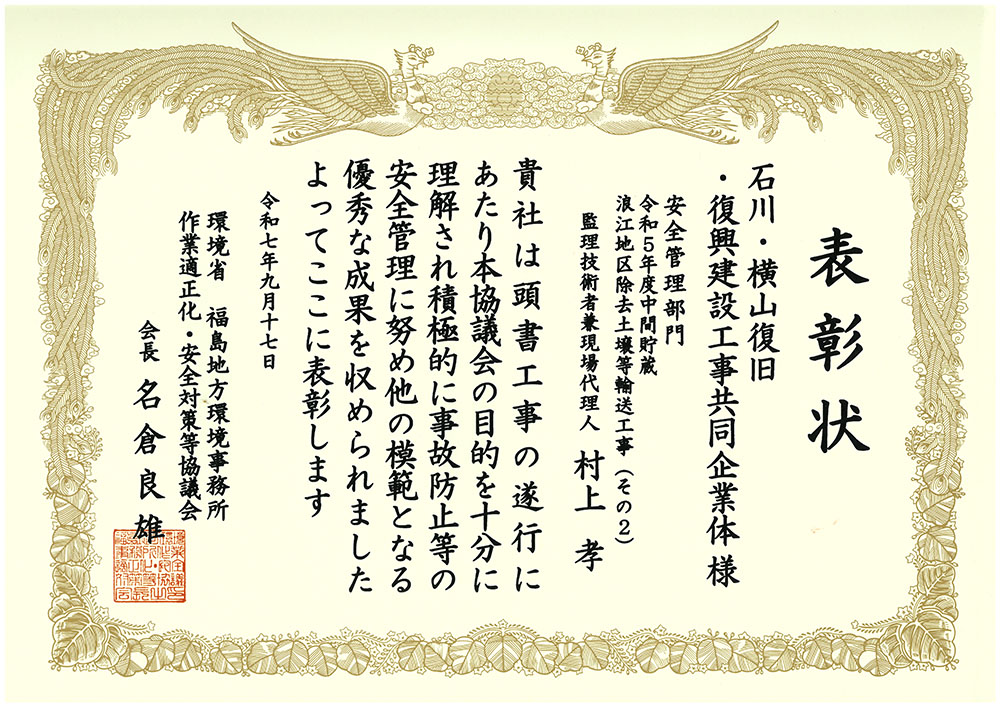 表彰状
石川・横山復旧
・復興建設工事共同企業体 様
安全管理部門
令和５年度中間貯蔵
浪江地区除去土壌等輸送工事（その２）
監理技術者兼現場代理人 村上 孝
貴社は頭書工事の遂行に
あたり本協議会の目的を十分に
理解され積極的に事故防止等の
安全管理に努め他の模範となる
優秀な成果を収められました
よってここに表彰します
令和七年九月十七日
環境省 福島地方環境事務所
作業適正化・安全対策等協議会
会長 名倉良雄